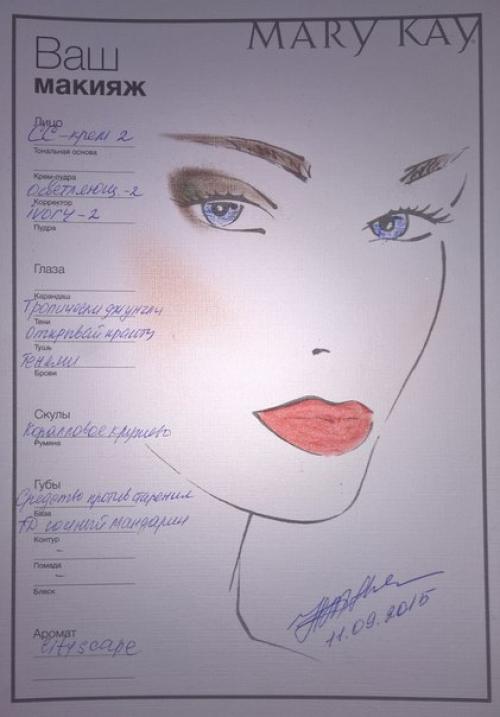 MARY KAY
Ваш
макияж
Лицо
СС-крем 2
Тональная основа
Крем-пудра
осветляющ.-2
Корректор
ivory-2
Пудра
Глаза
Карандаш
Тропически джунгли
Тени
Открывай красоту
Тушь
Тенями
Брови
Скулы
Коралловое кружево
Румяна
Губы
Средство против старения
База
AD сочный мандарин
Контур
-
Помада
-
Блеск
Аромат
Cityscape
11.09.2015